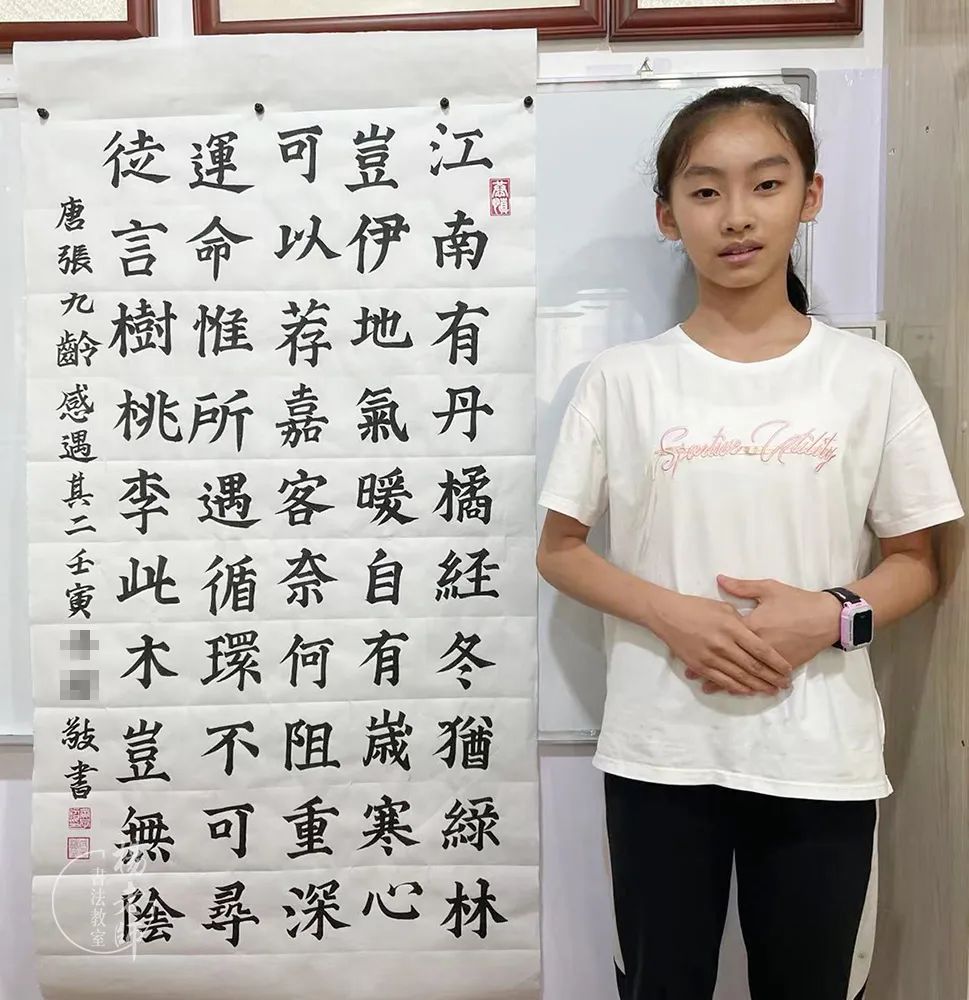 江南有丹橘経冬猶綠林
豈伊地氣暖自有歲寒心
可以荐嘉客奈何阻重深
運命惟所遇循環不可尋
徒言樹桃李此木豈無陰
唐張九齡感遇其二壬寅
敬書
Sportive Vitility
楊老師
書法教室